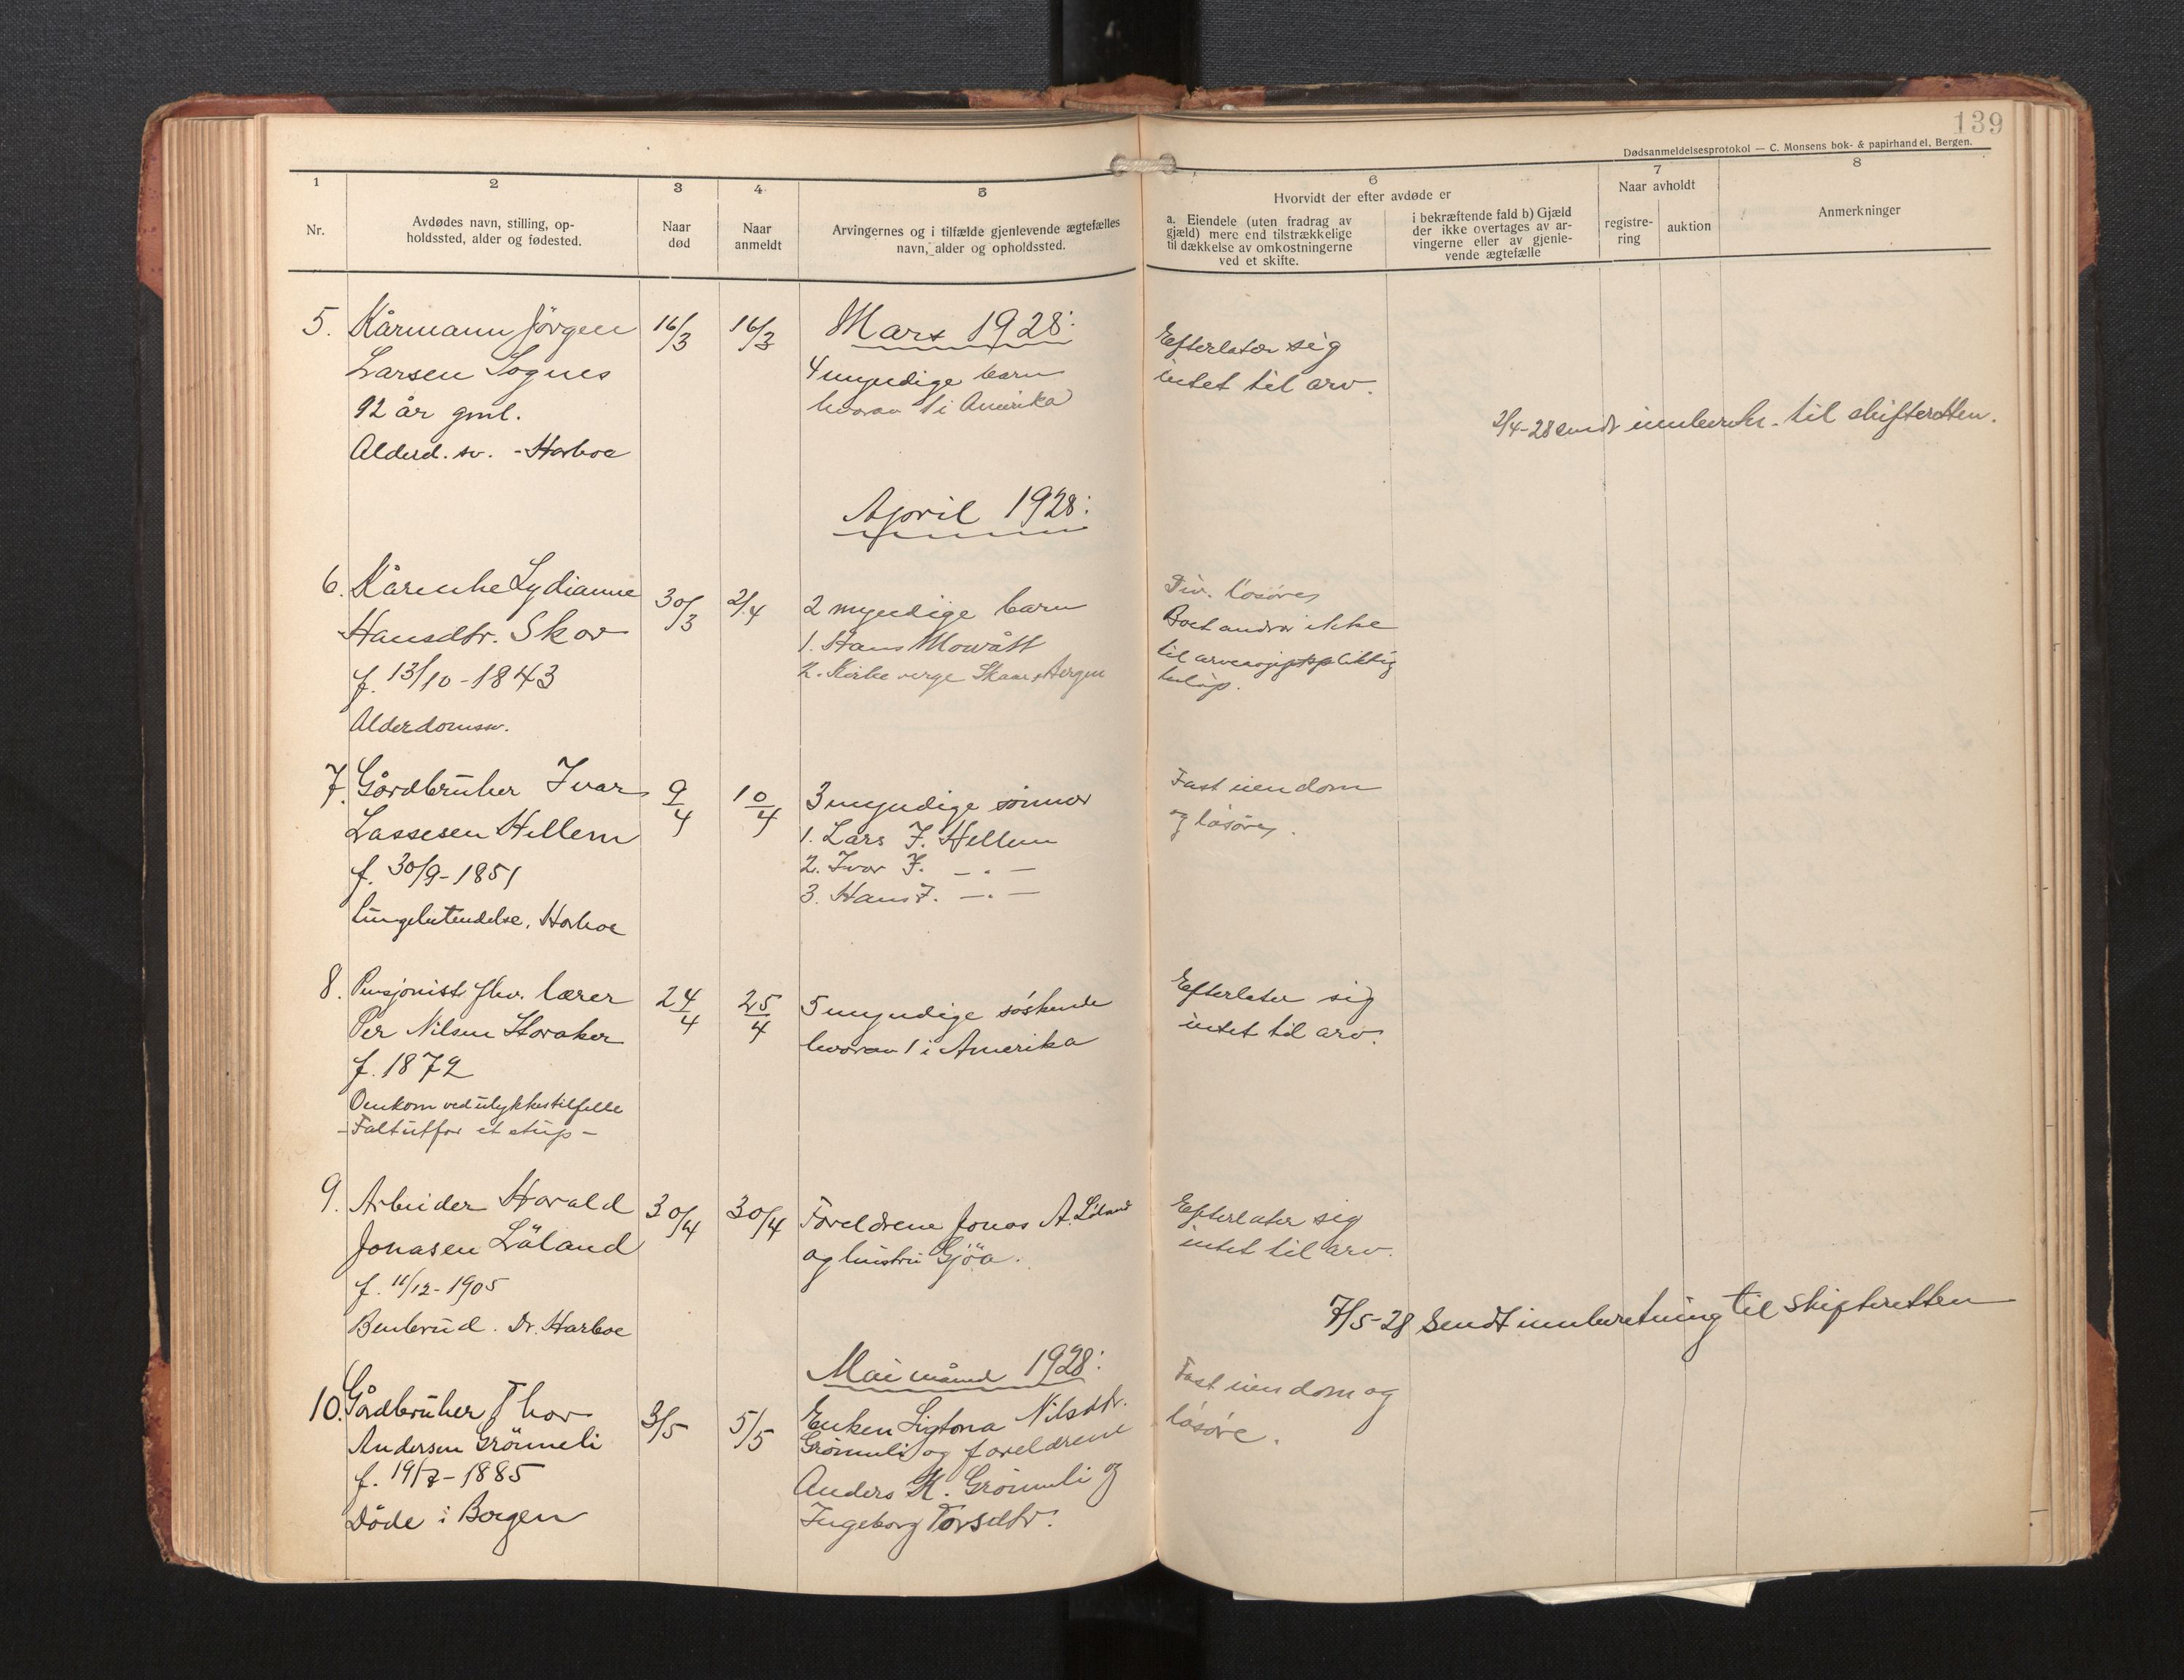 139
Dødsanmeldelsesprotokol — C. Monsens bok- & papirhandel, Bergen.
1
2
3
4
5
6
7
8
Nr.
Avdødes navn, stilling, op-
holdssted, alder og fødested.
Naar
død
Naar
anmeldt
Arvingernes og i tilfælde gjenlevende ægtefælles
navn, alder og opholdssted.
Hvorvidt der efter avdøde er
a. Eiendele (uten fradrag av
gjæld) mere end tilstrækkelige
til dækkelse av omkostningerne
ved et skifte.
i bekræftende fald b) Gjæld
der ikke overtages av ar-
vingerne eller av gjenle-
vende ægtefælle
Naar avholdt
registre-
ring
auktion
Anmerkninger
Mars 1928:
5. Kårmann Jörgen
Larsen Sognes
92 år gml.
Alderd. sv. - Harboe
16/3
16/3
4 myndige barn
hvorav 1 i Amerika
Efterlater sig
intet til arv.
2/4-28 sendt innberetn. til skifteretten.
April 1928:
6. Kårenhe Lydianne
Hansdtr. Skor
f. 13/10-1843
Alderdomssv.
30/3
2/4
2 myndige barn
1. Hans Mowått
2. Kirkeverge Skaar, Bergen
Div. lösöre,
Boet andrar ikke
til arveavgiftspliktig
belöp.
7. Gårdbruker Ivar
Lassesen Hellem
f. 30/9-1851
Lungebetendelse, Harboe
9/4
10/4
3 myndige sönner
1. Lars I. Hellem
2. Ivar I. — . —
3. Hans I. — . —
Fast eiendom
og lösöre.
8. Pensjonist fhv. lærer
Per Nilsen Horaker
f. 1872
Omkom ved ulykkestilfelle
- Falt utfor et stup -
24/4
25/4
5 myndige söskende
hvorav 1 i Amerika
Efterlater sig
intet til arv.
9. Arbeider Harald
Jonasen Löland
f. 11/12-1905
Benbrud. Dr. Harboe
30/4
30/4
Foreldrene Jonas A. Löland
og hustru Gjöa.
Efterlater sig
intet til arv.
7/5-28 Sendt innberetning til skifteretten
Mai måned 1928:
10. Gårdbruker Thor
Andersen Grönneli
f. 19/7-1885
Döde i Bergen
3/5
5/5
Enken Ligtona Nilsdtr.
Grönneli og foreldrene
Anders K. Grönneli og
Ingeborg Torsdtr.
Fast eiendom og
lösöre.